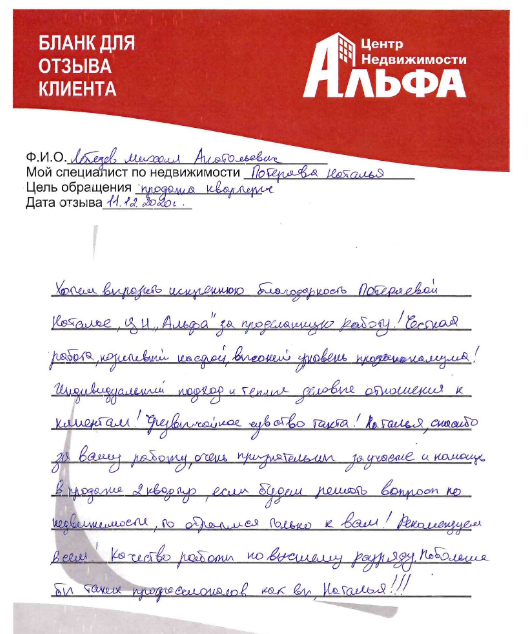 БЛАНК ДЛЯ
ОТЗЫВА
КЛИЕНТА
Центр
Недвижимости
АЛЬФА
Ф.И.О. Михаил Анатольевич
Мой специалист по недвижимости Потеряева Наталья
Цель обращения продажа квартиры
Дата отзыва 11.12.2020г.
Хотим выразить искреннюю благодарность Потеряевой
Наталье, ЦН „Альфа" за проделанную работу! Честная
работа, позитивный настрой, высокий уровень профессионализма!
Индивидуальный подход и теплые деловые отношения к
клиентам! Чрезвычайное чувство такта! Наталья, спасибо
за вашу работу, очень признательны за участие и помощь
в продаже 2 квартир, если будем решать вопрос по
недвижимости, то обратимся только к вам! Рекомендуем
всем! Качество работы по высшему разряду. Побольше
бы таких профессионалов как вы, Наталья!!!